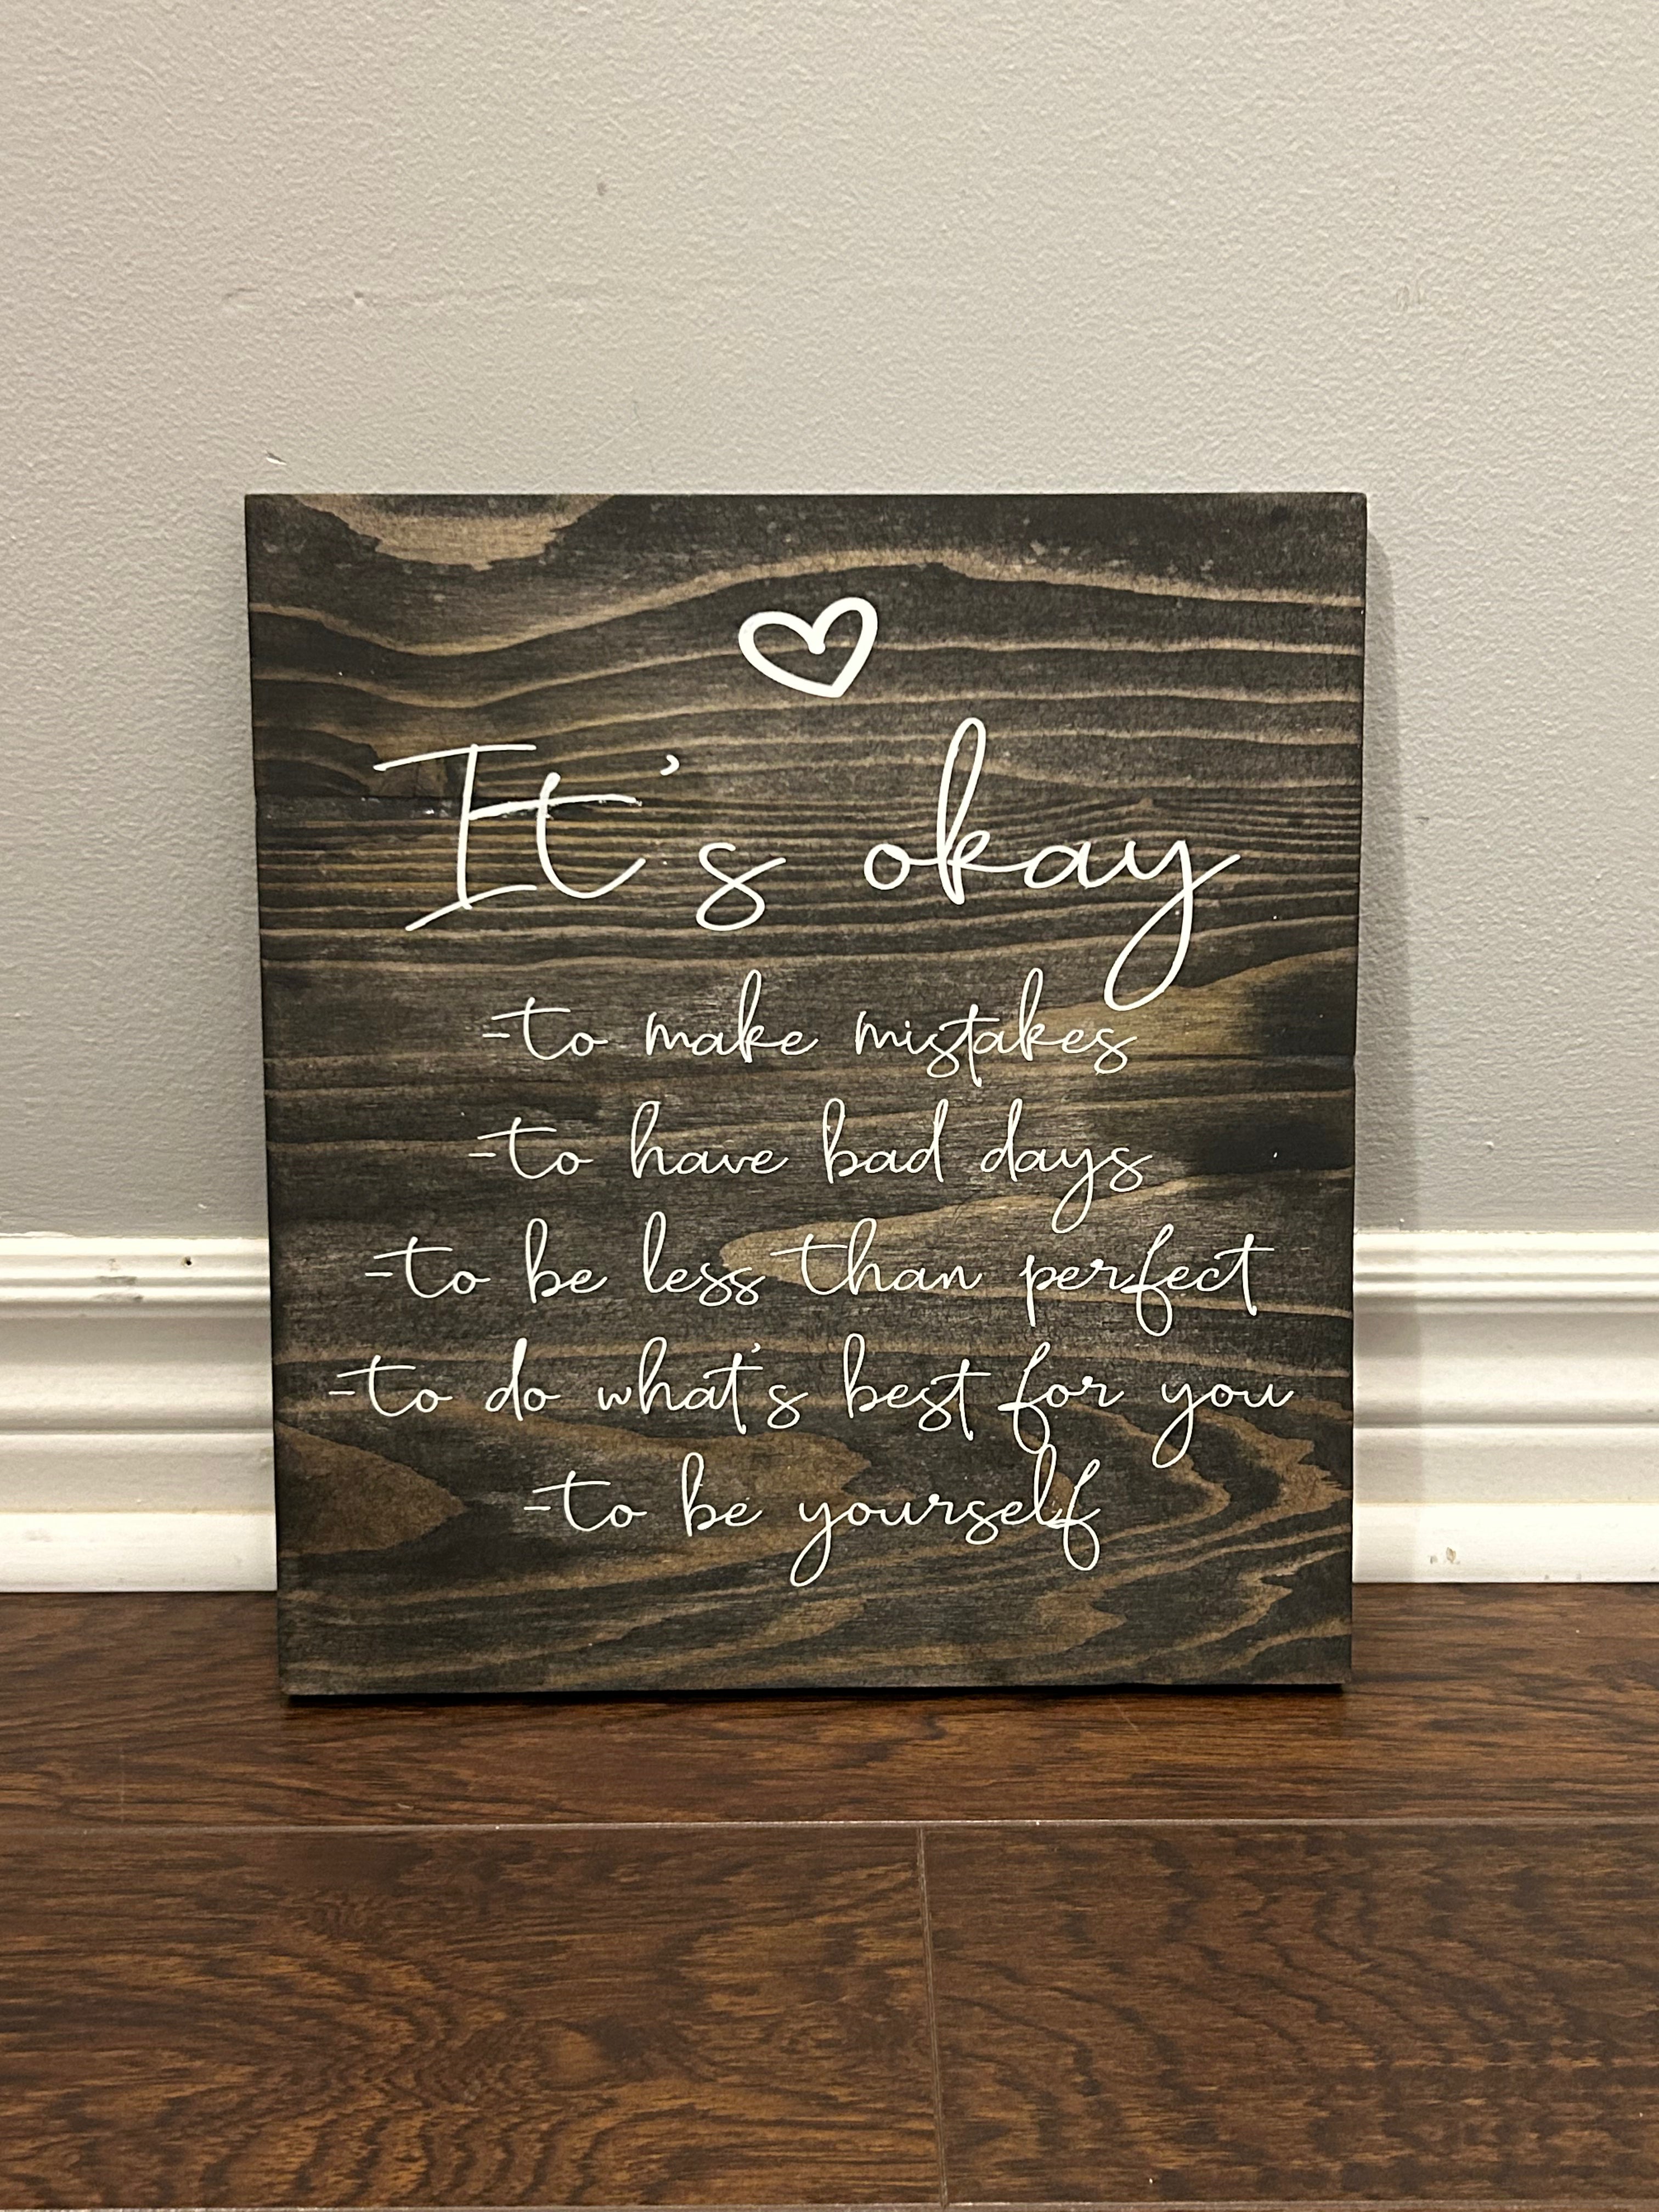 It's okay
-to make mistakes
-to have bad days
-to be less than perfect
-to do what's best for you
-to be yourself